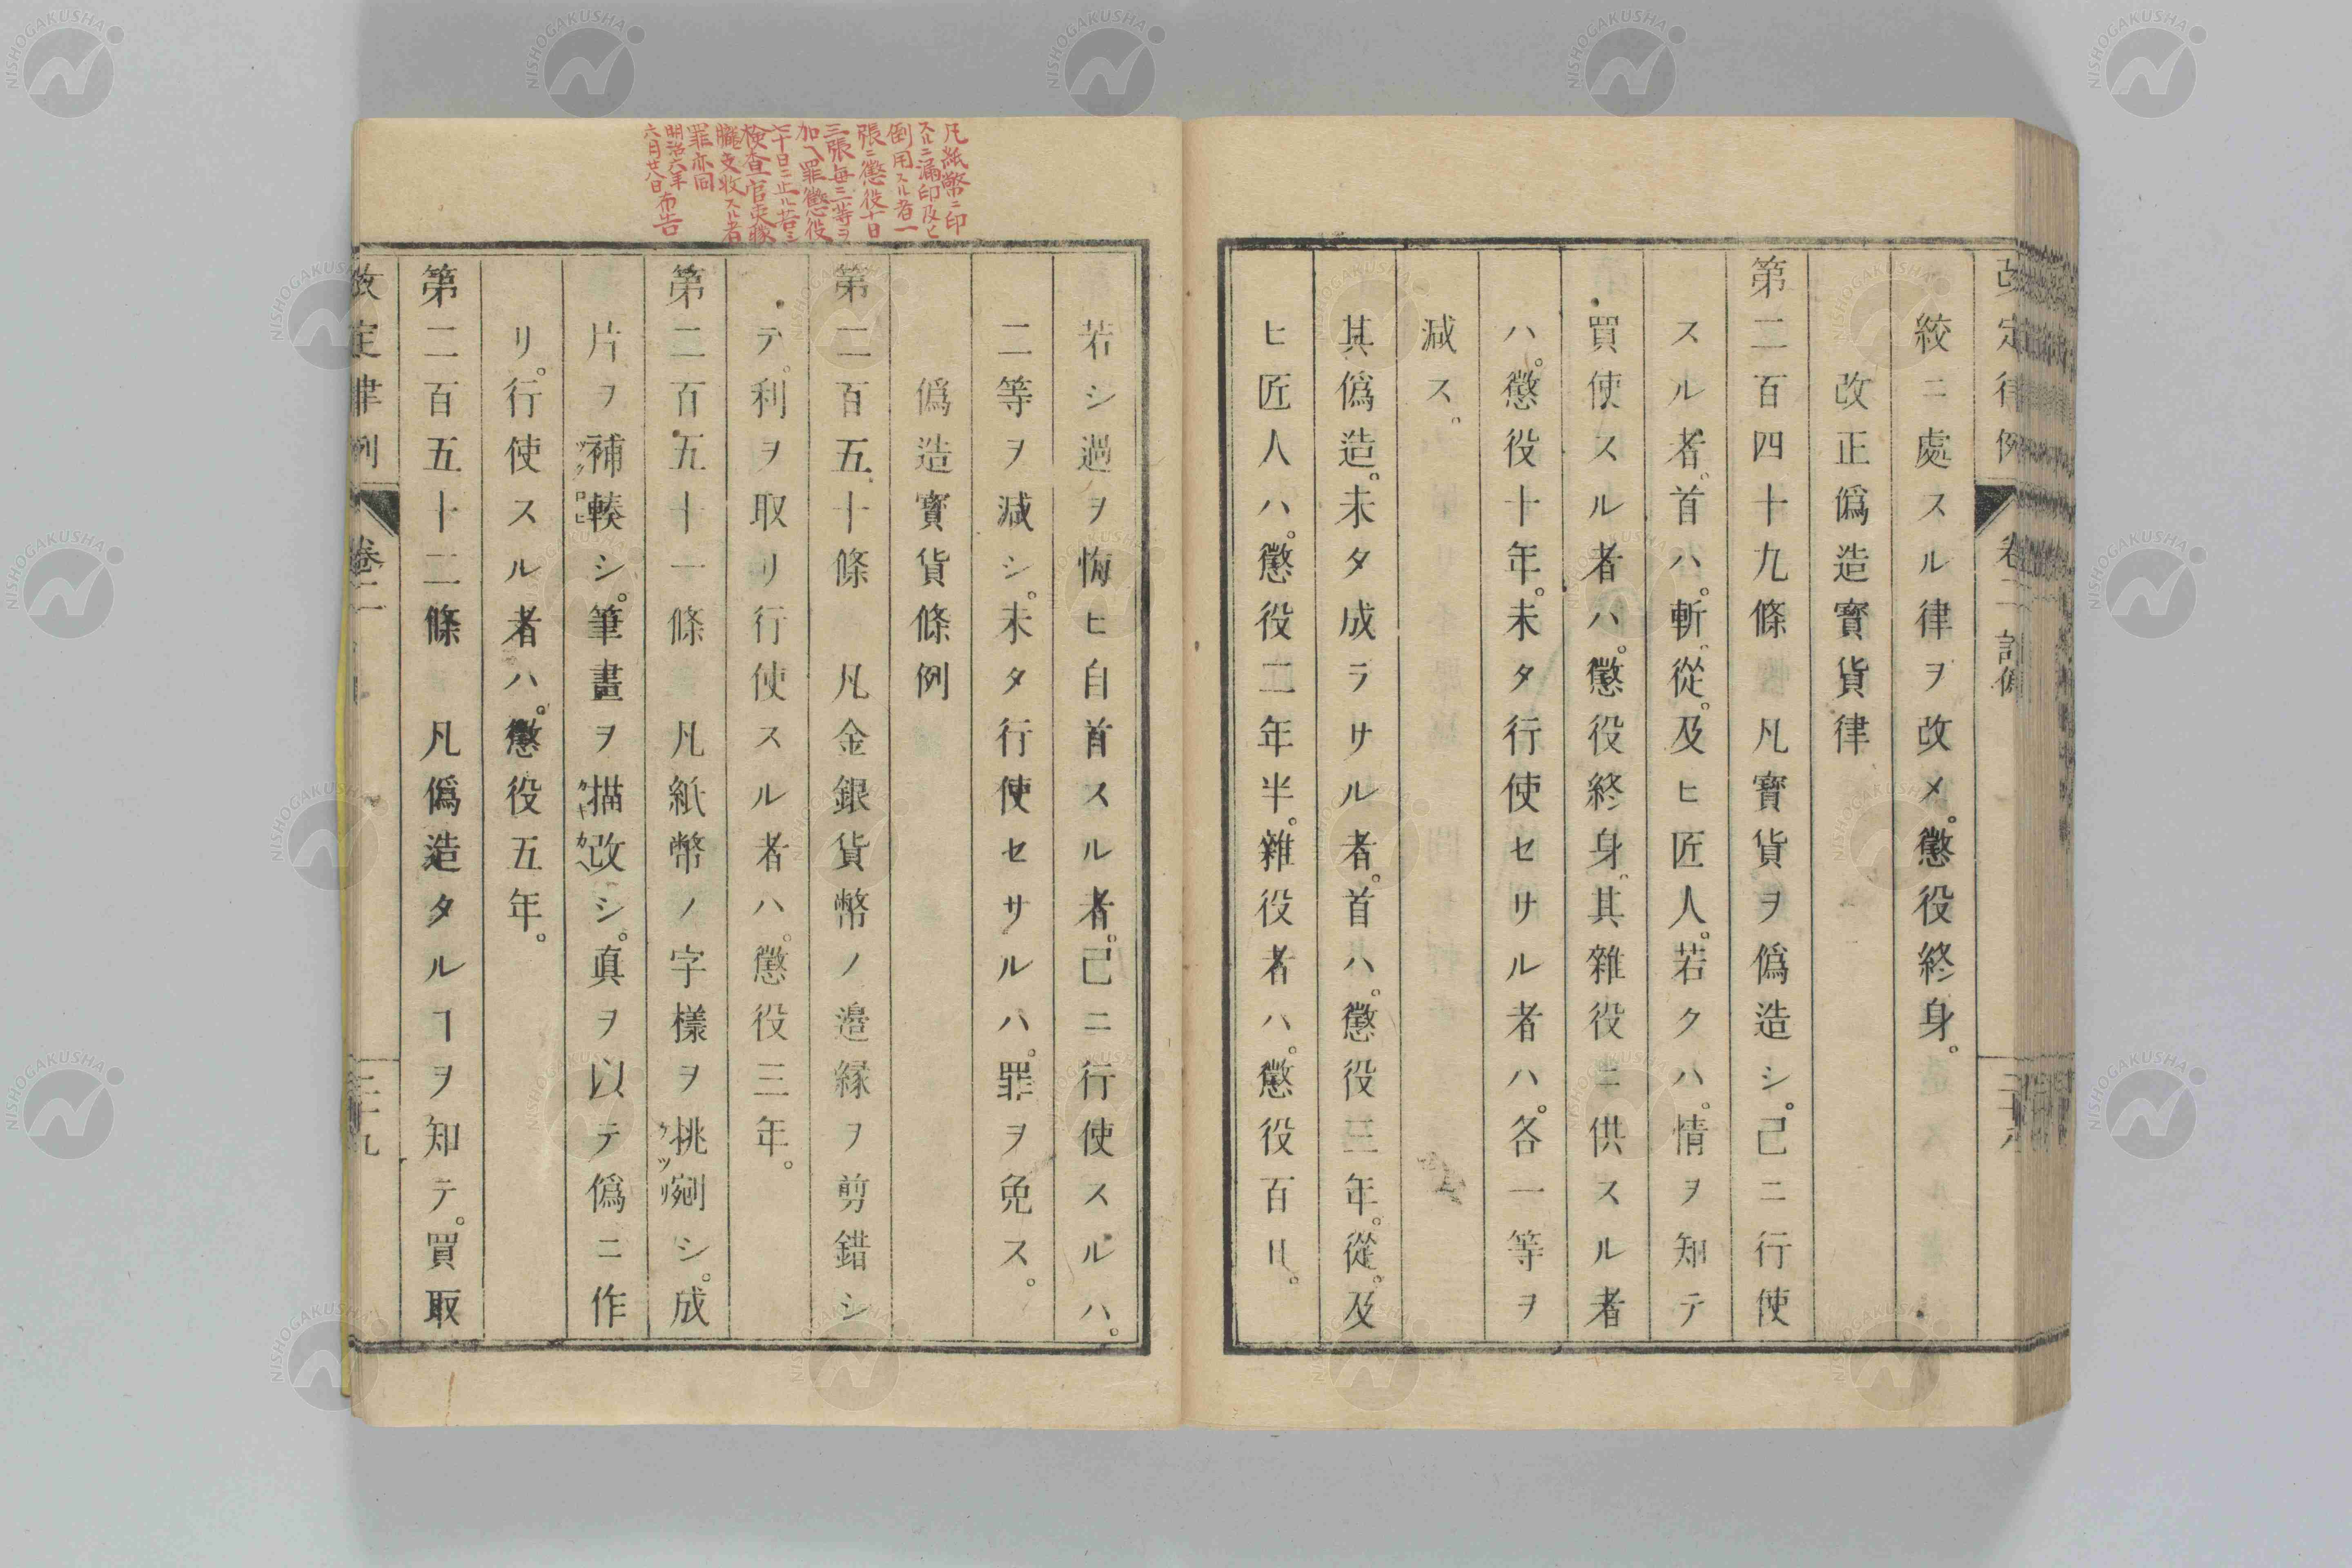 絞ニ處スル律ヲ改メ。懲役終身。
改正僞造寳貨律
第二百四十九條　凡寳貨ヲ僞造シ。己ニ行使
スル者。首ハ。斬。從。及ヒ匠人。若クハ。情ヲ知テ
買使スル者ハ。懲役終身。其雜役ニ供スル者
ハ。懲役十年。未タ行使セサル者ハ。各一等ヲ
減ス。
其僞造。未タ成ラサル者。首ハ。懲役三年。從。及
ヒ匠人ハ。懲役二年半。雜役者ハ。懲役百日。
若シ過ヲ悔ヒ自首スル者。己ニ行使スルハ。
二等ヲ減シ。未タ行使セサルハ。罪ヲ免ス。
僞造寳貨條例
第二百五十條　凡金銀貨幣ノ邉緣ヲ剪錯シ
テ。利ヲ取リ行使スル者ハ。懲役三年。
第二百五十一條　凡紙幣ノ字樣ヲ挑剜シ。成
片ヲ補輳シ。筆畫ヲ描改シ。眞ヲ以テ僞ニ作
リ。行使スル者ハ。懲役五年。
第二百五十二條　凡僞造タルヿヲ知テ。買取
改定律例　卷二
凡紙幣ニ印
スルニ漏印及ヒ
倒用スル者一
張ニ懲役十日
三張每ニ一等ヲ
加ヘ罪懲役
七十日ニ止ル若シ
檢查官吏朦
朧支收スル者
罪亦同
明治六年
六月廿八日布告
NISHOGAKUSHA